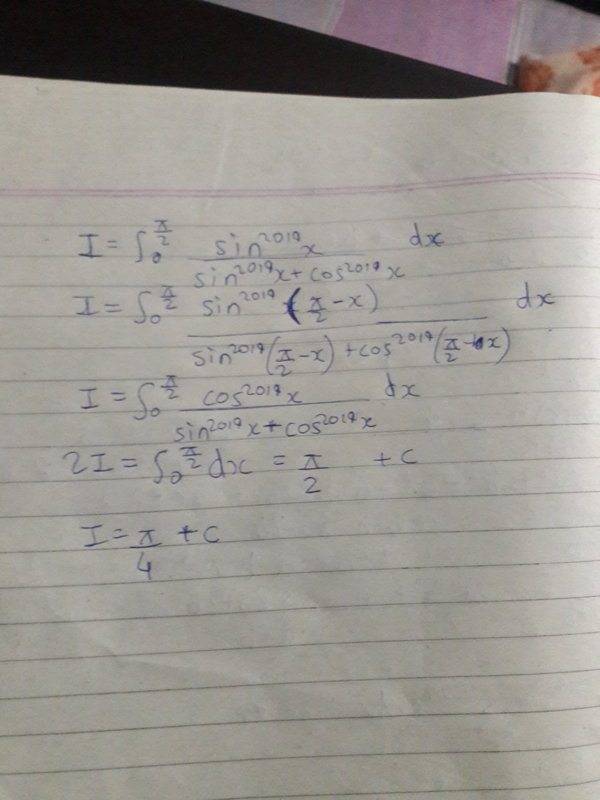 I = ∫₀^(π/2) sin²⁰¹⁹x / (sin²⁰¹⁹x + cos²⁰¹⁹x) dx
I = ∫₀^(π/2) sin²⁰¹⁹(π/2 - x) / (sin²⁰¹⁹(π/2 - x) + cos²⁰¹⁹(π/2 - x)) dx
I = ∫₀^(π/2) cos²⁰¹⁹x / (sin²⁰¹⁹x + cos²⁰¹⁹x) dx
2I = ∫₀^(π/2) dx = π/2 + c
I = π/4 + c